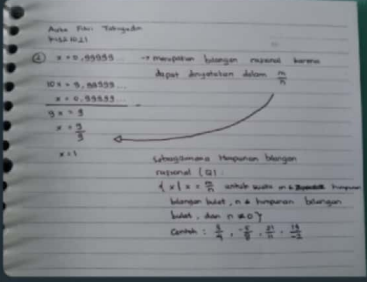 ② x = 0,99999... → merupakan bilangan rasional karena
dapat dinyatakan dalam m/n
10x = 9,99999...
x = 0,99999...
9x = 9
x = 9/9
x = 1
Sebagaimana Himpunan bilangan
rasional (Q) :
{ x | x = m/n untuk suatu m ∈ himpunan
bilangan bulat, n ∈ himpunan bilangan
bulat, dan n ≠ 0 }
Contoh :